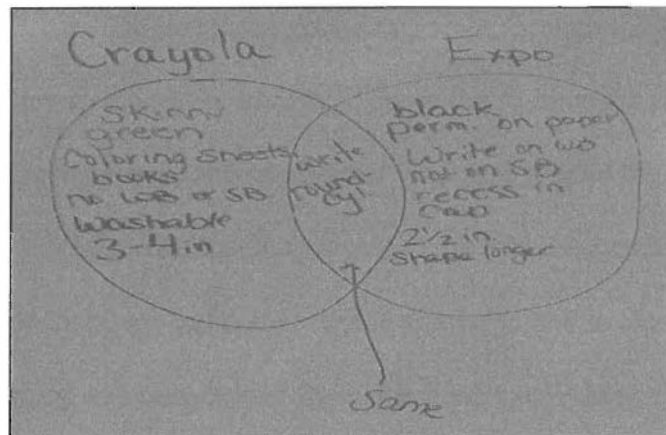 Crayola
Expo
skinny
green
Coloring sheets
books
no WB or SB
washable
3-4 in
write
round-
cyl.
black
perm. on paper
Write on WB
not on SB
recess in
cap
2 1/2 in.
shape longer
Same